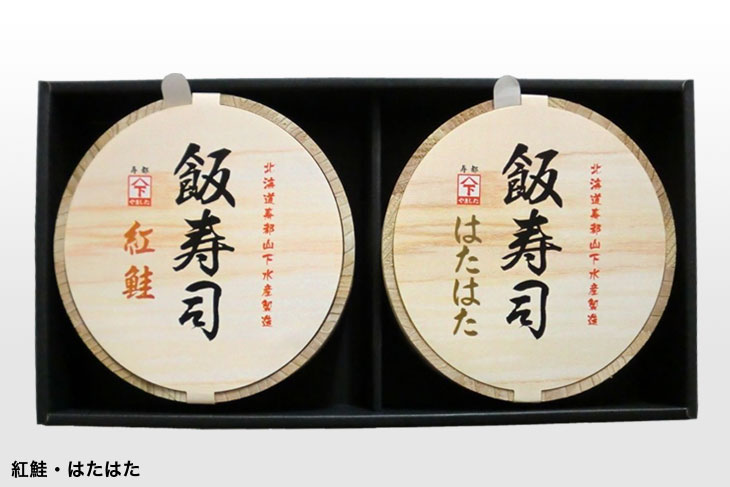 北海道寿都山下水産製造
飯寿司
寿都
下
やました
紅鮭
北海道寿都山下水産製造
飯寿司
寿都
下
やました
はたはた
紅鮭・はたはた